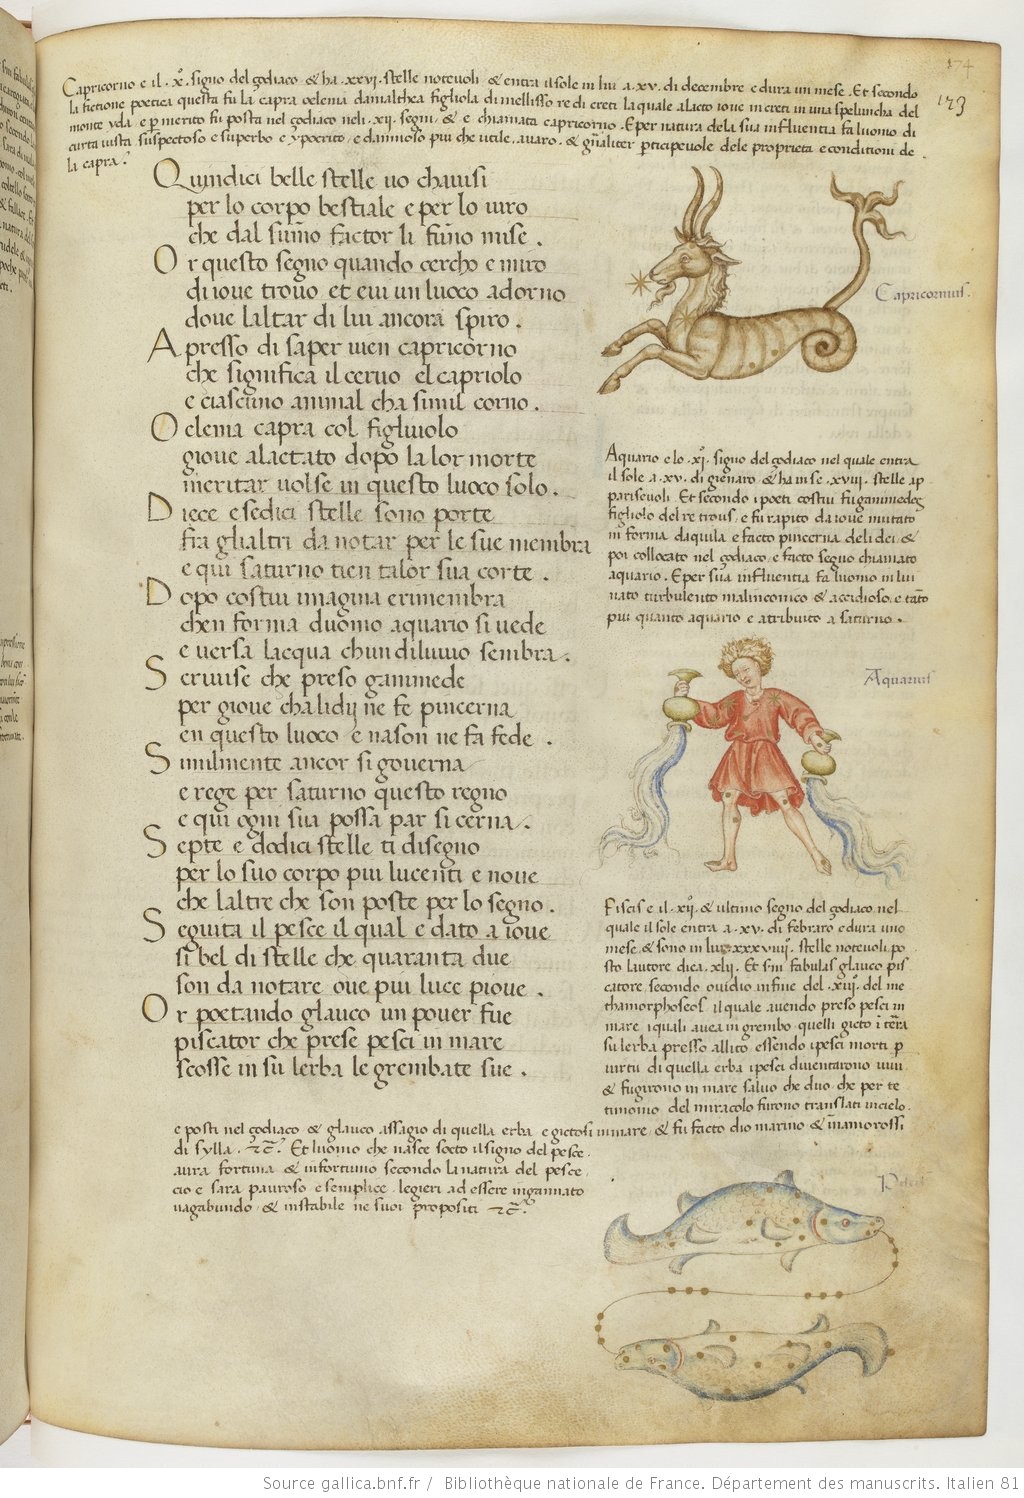 174
173
Capricorno e il .xº. signo del zodiaco & ha .xxvi. stelle notevoli & entra il sole in lui a .xv. di decembre e dura un mese. Et secondo
la fictione poetica questa fu la capra oelenia damalthea figliola di mellisso re di creti la quale alacto iove in creti in una speluncha del
monte yda e p merito fu posta nel zodiaco neli .xii. segni & e chiamata capricorno. E per natura dela sua influentia fa luomo di
curta vista suspectoso e superbo e ypocrito e dannoso piu che utile, avaro. & gñaliter pticipevole dele proprieta e conditioni de
la capra.
Quindici belle stelle vo chavisi
per lo corpo bestiale e per lo viro
che dal sum̃o factor li fuñno mise.
Or questo segno quando cercho e miro
di iove trovo et evi un luoco adorno
dove laltar di lui ancora spiro.
Apresso di saper vien capricorno
che significa il cervo el capriolo
e ciascuno animal cha simil corno.
Oclenia capra col figluiolo
giove alactato dopo la lor morte
meritar volse in questo luoco solo.
Diece e sedici stelle sono porte
fra glialtri da notar per le sue membra
e qui saturno tien talor sua corte.
Dopo costui imagina e rimembra
chen forma duomo aquario si vede
e versa lacqua chun diluvio sembra.
Scrivise che preso ganimede
per giove cha lidij ne fe pincerna
en questo luoco e nason ne fa fede.
Similmente ancor si governa
e rege per saturno questo regno
e qui ogni sua possa par si cerna.
Septe e dodici stelle ti disegno
per lo suo corpo piu lucenti e nove
che laltre che son poste per lo segno.
Seguita il pesce il qual e dato a iove
si bel di stelle che quaranta due
son da notare ove piu luce piove.
Or poetando glauco un pover fue
piscator che prese pesci in mare
scosse in su lerba le grembate sue.
Capricornius.
Aquario e lo .xi. signo del zodiaco nel quale entra
il sole a .xv. di gienaro & ha in se .xviii. stelle ap
pariscevoli. Et secondo i poeti costui fu ganimedes
figliolo del re trous, e fu rapito da iove mutato
in forma daquila e facto pincerna deli dei &
poi collocato nel zodiaco e facto segno chiamato
aquario. E per sua influentia fa luomo in lui
nato turbulento malinconico & accidioso, e tãto
piu quanto aquario e atribuito a saturno.
Aquarius
Piscis e il .xii. & ultimo segno del zodiaco nel
quale il sole entra a .xv. di febraro e dura uno
mese & sono in lui xxxviiii. stelle notevoli, po
sto lautore dica .xlii. Et s'in fabulas glauco pis
catore secondo ovidio in fine del .xiii. del me
thamorphoseos il quale avendo preso pesci in
mare i quali avea in grembo quelli gieto ĩ tẽra
su lerba presso allito essendo i pesci morti p
virtu di quella erba i pesci diventarono vivi
& fugirono in mare salvo che duo, che per te
timonio del miracolo furono translati in cielo.
e posti nel zodiaco & glauco assagio di quella erba e gietosi in mare & fu facto dio marino & inamorossi
di sylla. &c̃. Et luomo che nasce socto il signo del pesce
avra fortuna & infortunio secondo la natura del pesce
cio e sara pauroso e semplice, legieri ad essere ingannato
vagabundo & instabile ne suoi propositi &c̃.
Pisces
Source gallica.bnf.fr / Bibliothèque nationale de France. Département des manuscrits. Italien 81